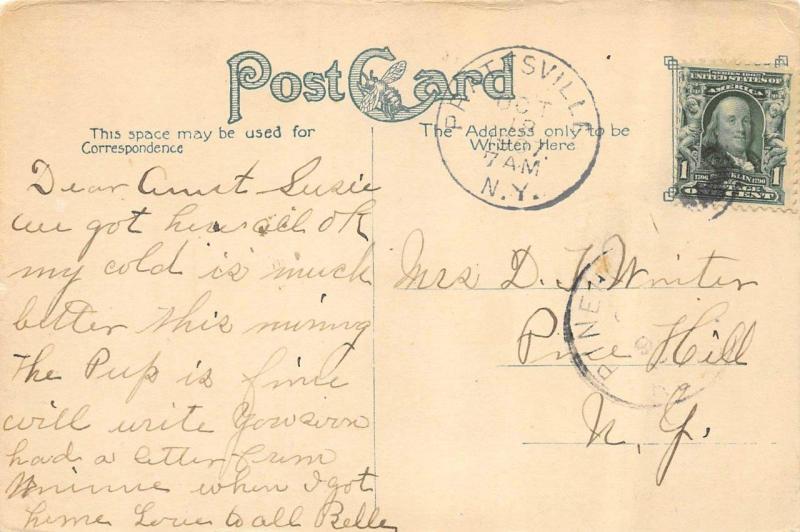 Post Card
This space may be used for
Correspondence
The Address only to be
Written Here
PRATTSVILLE
OCT
7 AM
N.Y.
SERIES 1902
UNITED STATES OF AMERICA
1 1706 FRANKLIN 1790 1
POSTAGE
ONE CENT
Dear Aunt Susie
we got here all OK
my cold is much
better this mining
the Pup is fine
will write you soon
had a letter frum
Minnie when I got
home Love to all Belle
Mrs D. T. Writer
Pine Hill
N. Y.
PINE